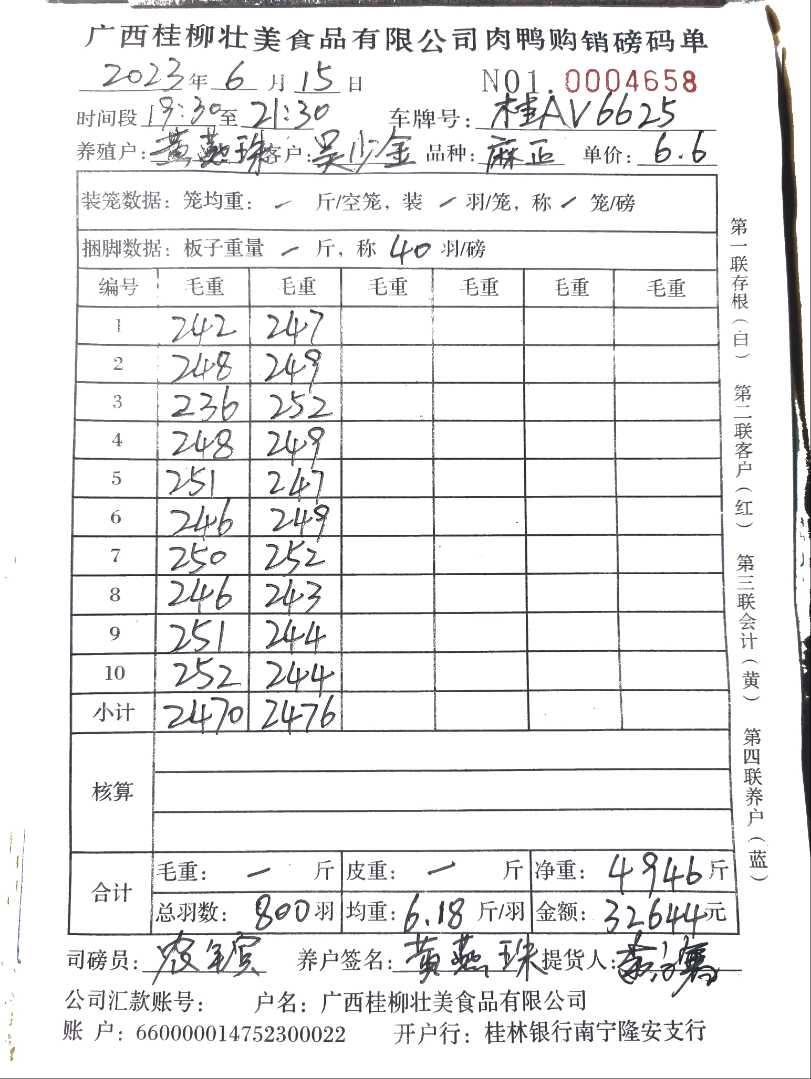 广西桂柳壮美食品有限公司肉鸭购销磅码单
2023年6月15日 NO1.0004658
时间段19:30至21:30 车牌号:桂AV6625
养殖户:黄燕珠客户:吴少金 品种:麻正 单价:6.6
装笼数据:笼均重:/斤/空笼,装/羽/笼,称/笼/磅
捆脚数据:板子重量/斤,称40羽/磅
编号 毛重 毛重 毛重 毛重 毛重 毛重
1 242 247
2 248 249
3 236 252
4 248 249
5 251 247
6 246 249
7 250 252
8 246 243
9 251 244
10 252 244
小计 2470 2476
核算
合计 毛重:/斤 皮重:/斤 净重:4946斤
总羽数:800羽 均重:6.18斤/羽 金额:32644元
司磅员: 养户签名:黄燕珠 提货人:
公司汇款账号: 户名:广西桂柳壮美食品有限公司
账 户:660000014752300022 开户行:桂林银行南宁隆安支行
第一联存根(白) 第二联客户(红) 第三联会计(黄) 第四联养户(蓝)